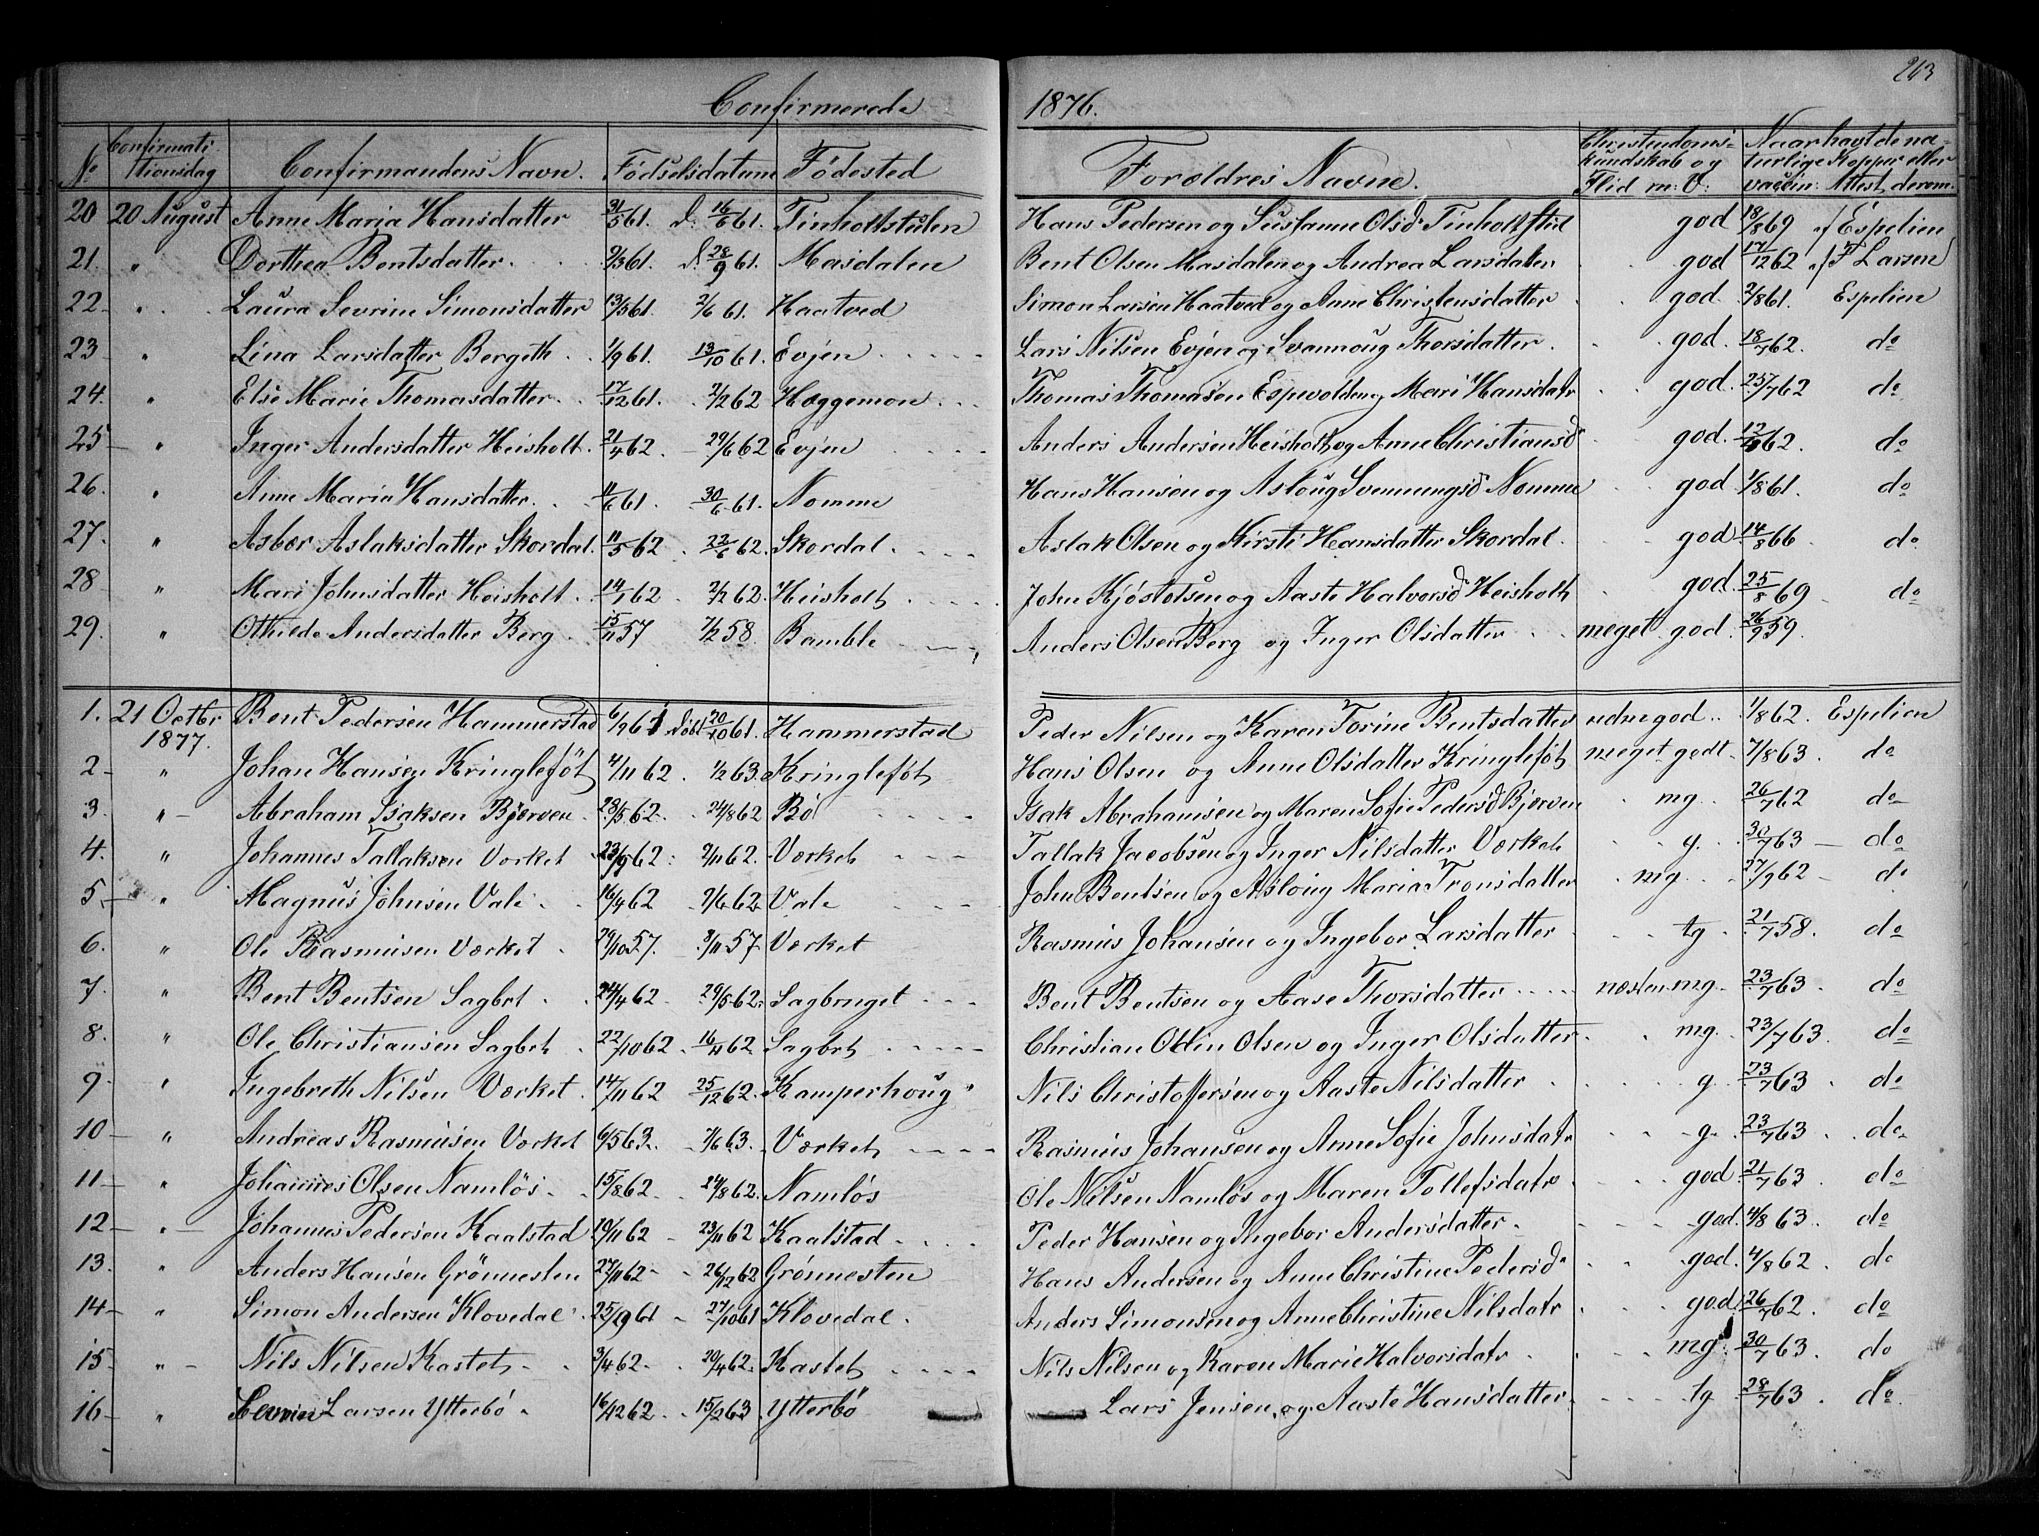 263
Confirmerede 1876.
No Confirmati tionsdag Confirmandens Navn. Fødselsdatum Födested Forældres Navne. Christendomskundskab og Flid m: V: Naar havt de naturlige Kopper eller vaccin: Attest derom.
20 20 August Anne Maria Hansdatter 31/5 61. d. 16/6 61. Finholtstulen Hans Pedersen og Susanne Olsd Finholtstul god 18/8 69 Espelien
21. " Dorthea Bentsdatter 9/3 61. d. 28/9 61. Masdalen Bent Olsen Masdalen og Andrea Larsdatter god 17/12 62 F Larsen
22 " Laura Sevrine Simonsdatter 13/5 61. 2/6 61. Haatved Simon Larsen Haatved og Anne Christensdatter god 2/8 61. Espelien
23 " Lina Larsdatter Bergeth 1/9 61. 13/10 61. Evjen Lars Nilsen Evjen og Svannoug Thorsdatter god. 18/7 62. do
24. " Else Marie Thomasdatter 17/12 61. 2/2 62 Hæggemon Thomas Thomasen Espevolden og Mari Hansdatr god. 25/7 62 do
25 " Inger Andersdatter Heisholt. 21/4 62. 29/6 62 Evjen Anders Andersen Heisholt og Anne Christiansd god. 12/9 62. do
26. " Anne Maria Hansdatter. 11/6 61. 30/6 61. Nomme Hans Hansen og Asloug Svennungsd Nomme god 1/8 61. do
27. " Asbor Aslaksdatter Skordal. 11/5 62 22/6 62. Skordal Aslak Olsen og Kirsti Hansdatter Skordal. god 14/8 66 do
28 " Mari Johnsdatter Heisholt 14/1 62 2/2 62. Heisholt John Kjøstolsen og Aaste Halvorsd Heisholt god. 25/8 69 do
29. " Othilde Andersdatter Berg 15/11 57 7/2 58. Bamble Anders Olsen Berg og Inger Olsdatter meget god. 26/9 59.
1. 21 Octbr 1877. Bent Pedersen Hammerstad 6/9 61 döbt 20/10 61. Hammerstad Peder Nilsen og Karen Torine Bentsdatter udm god 1/8 62. Espelien
2 " Johan Hansen Kringleföt 4/11 62. 1/2 63. Kringleföt Hans Olsen og Anne Olsdatter Kringleföt meget godt 7/8 63 do
3. " Abraham Isaksen Bjerven 23/5 62. 24/8 62 Bö Isak Abrahamsen og Maren Sofie Pedersd Bjerven mg 26/7 62 do
4. " Johannes Tallaksen Værket 23/9 62 2/11 62. Værket Tallak Jacobsen og Inger Nilsdatter Værket g. 30/7 63 do
5 " Magnus Johnsen Vale 16/4 62 9/6 62 Vale John Bentsen og Asloug Maria Tronsdatter mg 27/9 62 do
6. " Ole Rasmusen Værket 29/10 57. 8/11 57 Værket Rasmus Johansen og Ingebor Larsdatter tg 21/7 58. do
7. " Bent Bentsen Sagbrt 24/4 62 29/5 62. Sagbruget Bent Bentsen og Aase Thorsdatter næsten mg. 23/7 63. do
8. " Ole Christiansen Sagbrt 22/10 62 16/11 62. Sagbrt Christian Odin Olsen og Inger Olsdatter mg. 23/7 63. do
9 " Ingebreth Nilsen Værket 14/11 62 25/12 62. Kamperhoug Nils Christoffersen og Aaste Nilsdatter g. 23/7 63 do
10 " Andreas Rasmusen Værket 6/5 63. 7/6 63. Værket Rasmus Johansen og Anne Sofie Johnsdatr g. 23/7 63 do
11 " Johannes Olsen Namlös 15/8 62 24/8 62. Namlös Ole Nilsen Namlös og Maren Tollefsdatr god 21/7 63 do
12 " Johannes Pedersen Kaalstad 19/11 62 23/11 62 Kaalstad Peder Hansen og Ingebor Andersdatter god. 4/8 63. do
13. " Anders Hansen Grönnesten 27/11 62 26/12 62 Grönnesten Hans Andersen og Anne Christine Pedersd god. 4/8 62 do
14 " Simon Andersen Klovedal 25/9 61 27/10 61 Klovedal. Anders Simonsen og Anne Christine Nilsdatr god 26/7 62. do
15 " Nils Nilsen Kastet 3/4 62. 20/4 62. Kastet Nils Nilsen og Karen Marie Halvorsdatr mg. 30/7 63. do
16 " Larsen Ytterbö 16/12 62 15/2 63. Ytterbö Lars Jensen og Aaste Hansdatter tg 28/7 63. do